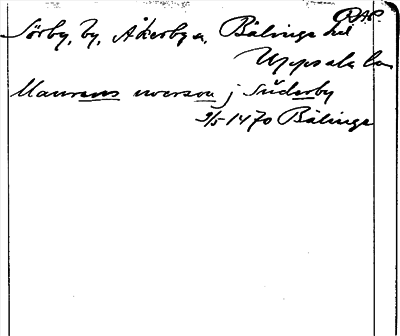 RAP.
Sörby, by, Åkerby sn, Bälinge hd
Uppsala län
Maurens iwerson j Süderby
3/5 1470 Bälinge